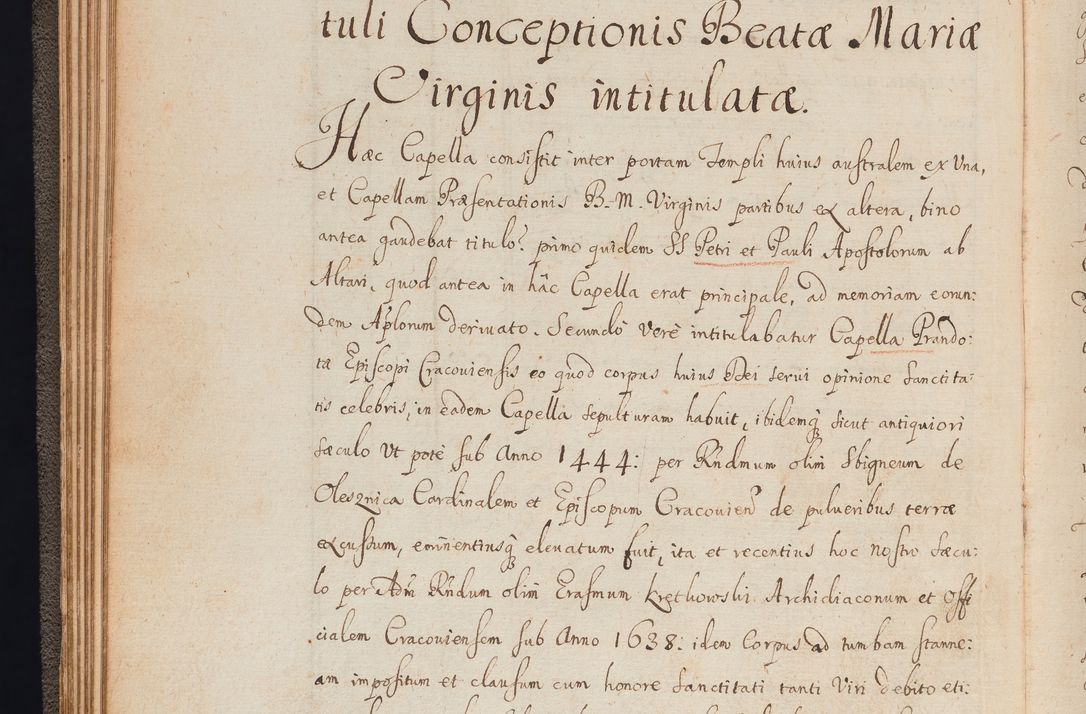 tuli Conceptionis Beatæ Mariæ
Virginis intitulatæ.
Hæc Capella consistit inter portam Templi huius australem ex Una,
et Capellam Præsentationis B. M. Virginis partibus ex altera, bino
antea gaudebat titulo: primo quidem SS Petri et Pauli Apostolorum ab
Altari, quod antea in hâc Capella erat principale, ad memoriam eorun:
dem Aplorum deriuato. Secundo verè intitulabatur Capella Prando:
tæ Episcopi Cracouiensis eo quòd corpus huius Dei serui opinione sanctita:
tis celebris, in eadem Capella sepulturam habuit, ibidemq́ sicut antiquiori
sæculo Ut potè sub Anno 1444: per Rńdmum olim Sbigneum de
Olesznica Cardinalem et Episcopum Cracouien: de pulueribus terræ
excussum, eminentiusq́ eleuatum fuit, ita et recentius hoc nostro sæcu:
lo per Adm̃ Rńdum olim Erasmum Kręthowski Archidiaconum et Offi
cialem Cracouiensem sub Anno 1638: idem Corpus ad tumbam stanne:
am impositum et clausum cum honore sanctitati tanti Viri debito eti: